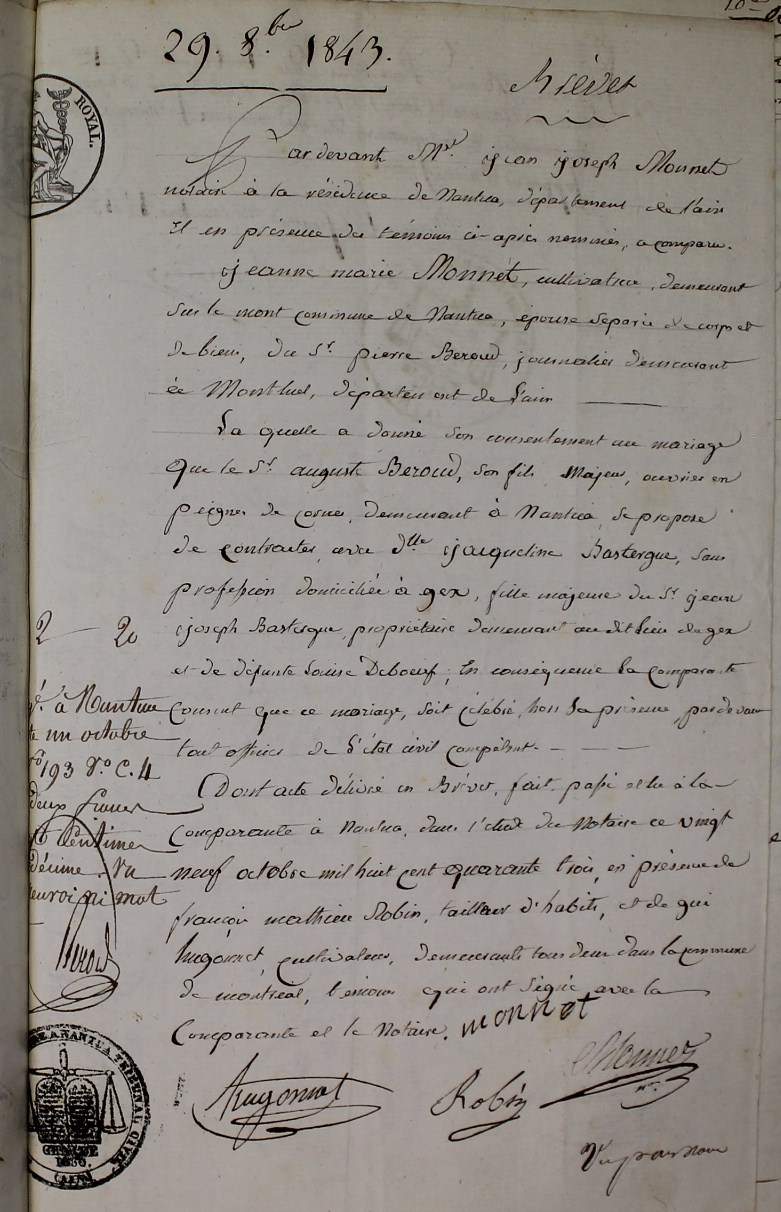 29. 8.bre 1843.
Brévet
ROYAL.
Pardevant Me. jean joseph Monnet
notaire à la résidence de Nantua, département de l'ain
Et en présence des témoins ci-après nommés, a comparu.
jeanne marie Monnet, cultivatrice, demeurant
sur le mont commune de Nantua, épouse séparée de corps et
de biens, du Sr. pierre Beroud, journalier demeurant
à Montluel, département de l'ain
La quelle a donné son consentement au mariage
Que le Sr. auguste Beroud, son fils Majeur, ouvrier en
peignes de cornes, demeurant à Nantua, se propose
de contracter avec dlle jacqueline Bastergue, sans
profession domiciliée à gex, fille majeure du Sr. jean
joseph Bastergue, propriétaire demeurant au dit lieu de gex
et de défunte Louise Deboeuf; En conséquence la comparante
Consent que ce mariage, soit célébré, hors sa présence, pardevant
tout officier de l'état civil compétent.
Dont acte délivré en Brévet, fait, passé et lu à la
Comparante à Nantua, dans l'étude du Notaire ce vingt
neuf octobre mil huit cent quarante trois, en présence de
françois mathieu Robin, tailleur d'habits, et de gui
hugonnet, cultivateur, demeurants tous deux dans la commune
de montréal, témoins qui ont signé avec la
Comparante et le Notaire.
monnet
Hugonnet
Robin
Monnet
2 20
à Nantua
un octobre
193 Vo. C. 4
deux francs
centimes
décime
renvoi ni mot
Beroud
NANTUA TRIBUNAL CIVIL
1830.
(AIN)